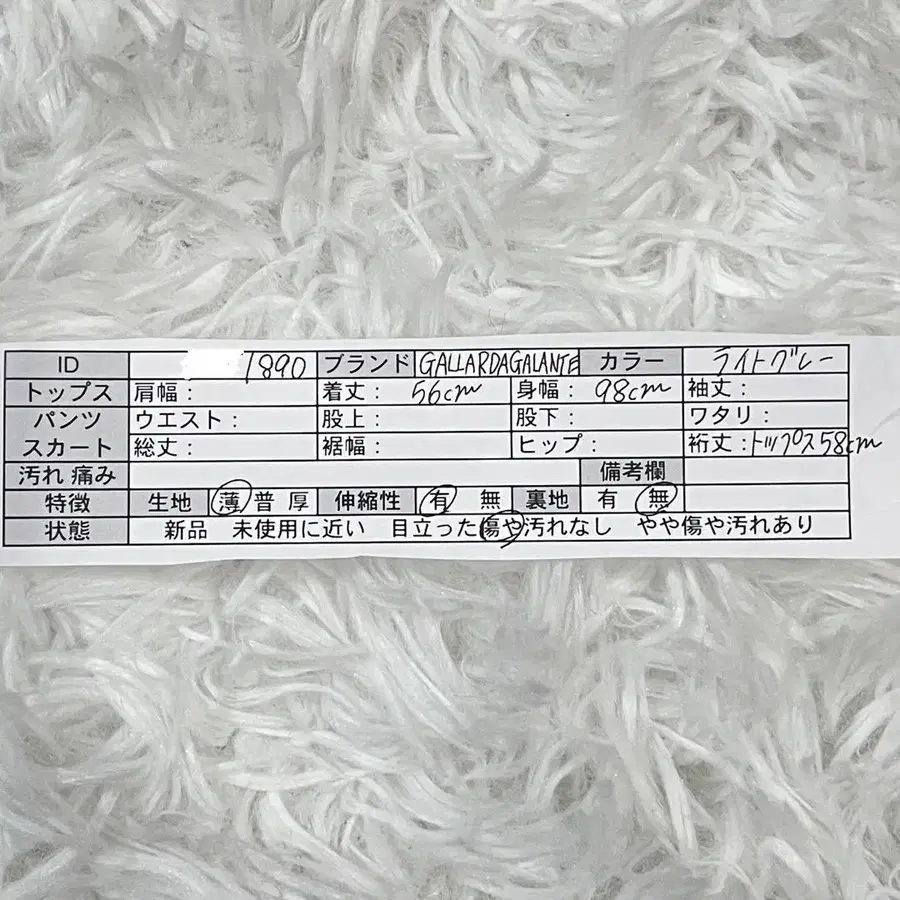 ID 1890 ブランド GALLARDAGALANTE カラー ライトグレー
トップス 肩幅: 着丈: 56cm 身幅: 98cm 袖丈:
パンツ ウエスト: 股上: 股下: ワタリ:
スカート 総丈: 裾幅: ヒップ: 裄丈:トップス58cm
汚れ 痛み 備考欄
特徴 生地 薄 普 厚 伸縮性 有 無 裏地 有 無
状態 新品 未使用に近い 目立った傷や汚れなし やや傷や汚れあり